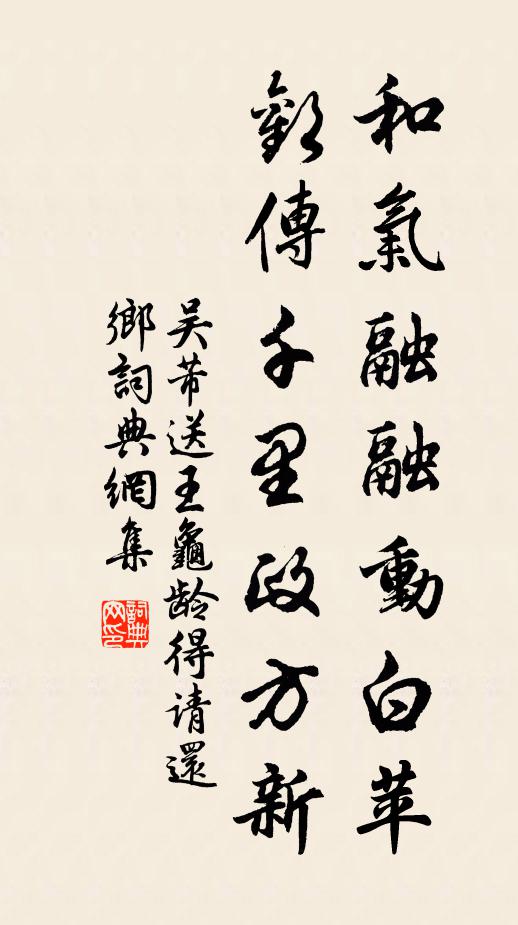 和氣融融動白苹
歡傳千里政方新
吴芾送王龜龄得请還
鄉詞典網集
詞典网印